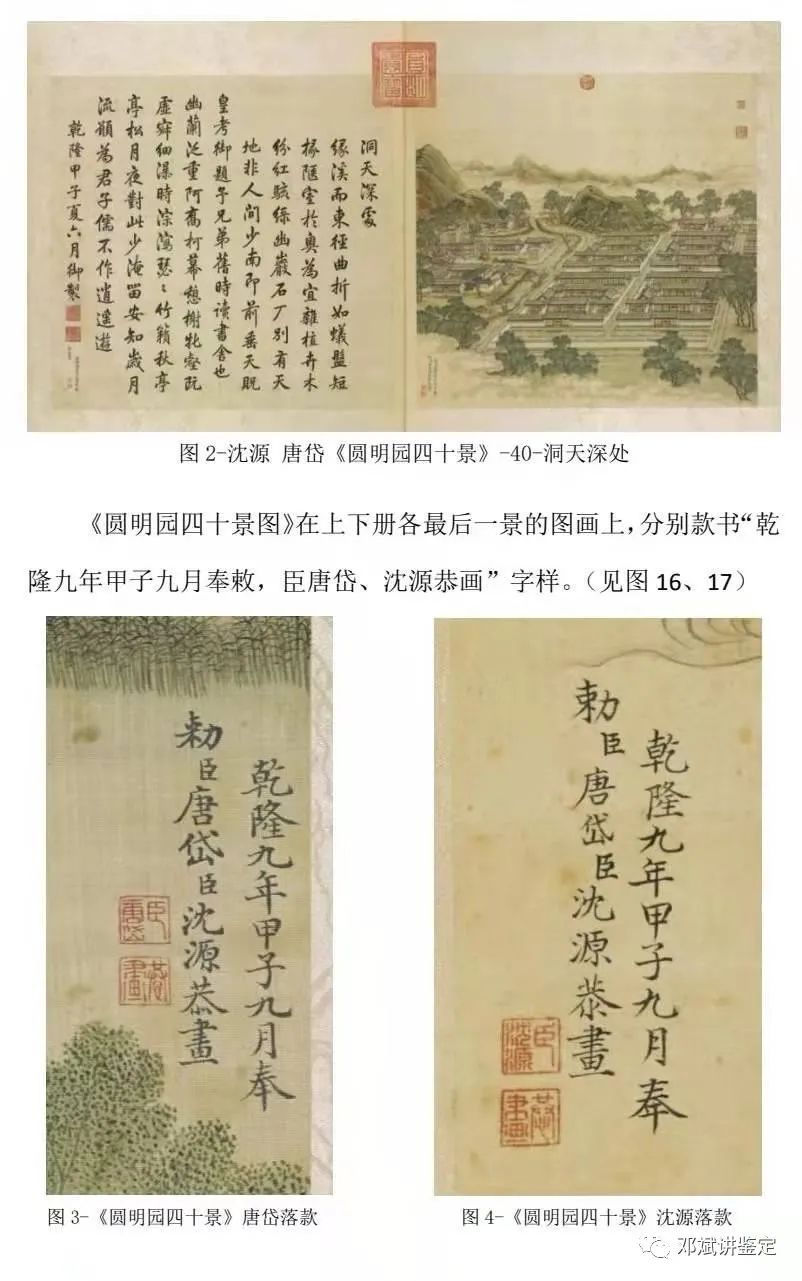 洞天深處
緣溪而東徑曲折如蟻盤短
椽陋室於奥為宜雜植卉木
紛紅駭綠幽巖石厂別有天
地非人間少南即前垂天貺
皇考御題予兄弟舊時讀書舍也
幽蘭泛重阿喬柯幕憩榭牝壑既
虛寂細瀑時淙瀉瑟〻竹籟秋亭
亭松月夜對此少淹留安知歲月
流願為君子儒不作逍遥遊
乾隆甲子夏六月御製
图 2-沈源 唐岱《圆明园四十景》-40-洞天深处
《圆明园四十景图》在上下册各最后一景的图画上，分别款书“乾
隆九年甲子九月奉敕，臣唐岱、沈源恭画”字样。（见图 16、17）
乾隆九年甲子九月奉
勅臣唐岱臣沈源恭畫
臣唐岱
恭畫
乾隆九年甲子九月奉
勅臣唐岱臣沈源恭畫
臣沈源
恭畫
图 3-《圆明园四十景》唐岱落款
图 4-《圆明园四十景》沈源落款
邓斌讲鉴定